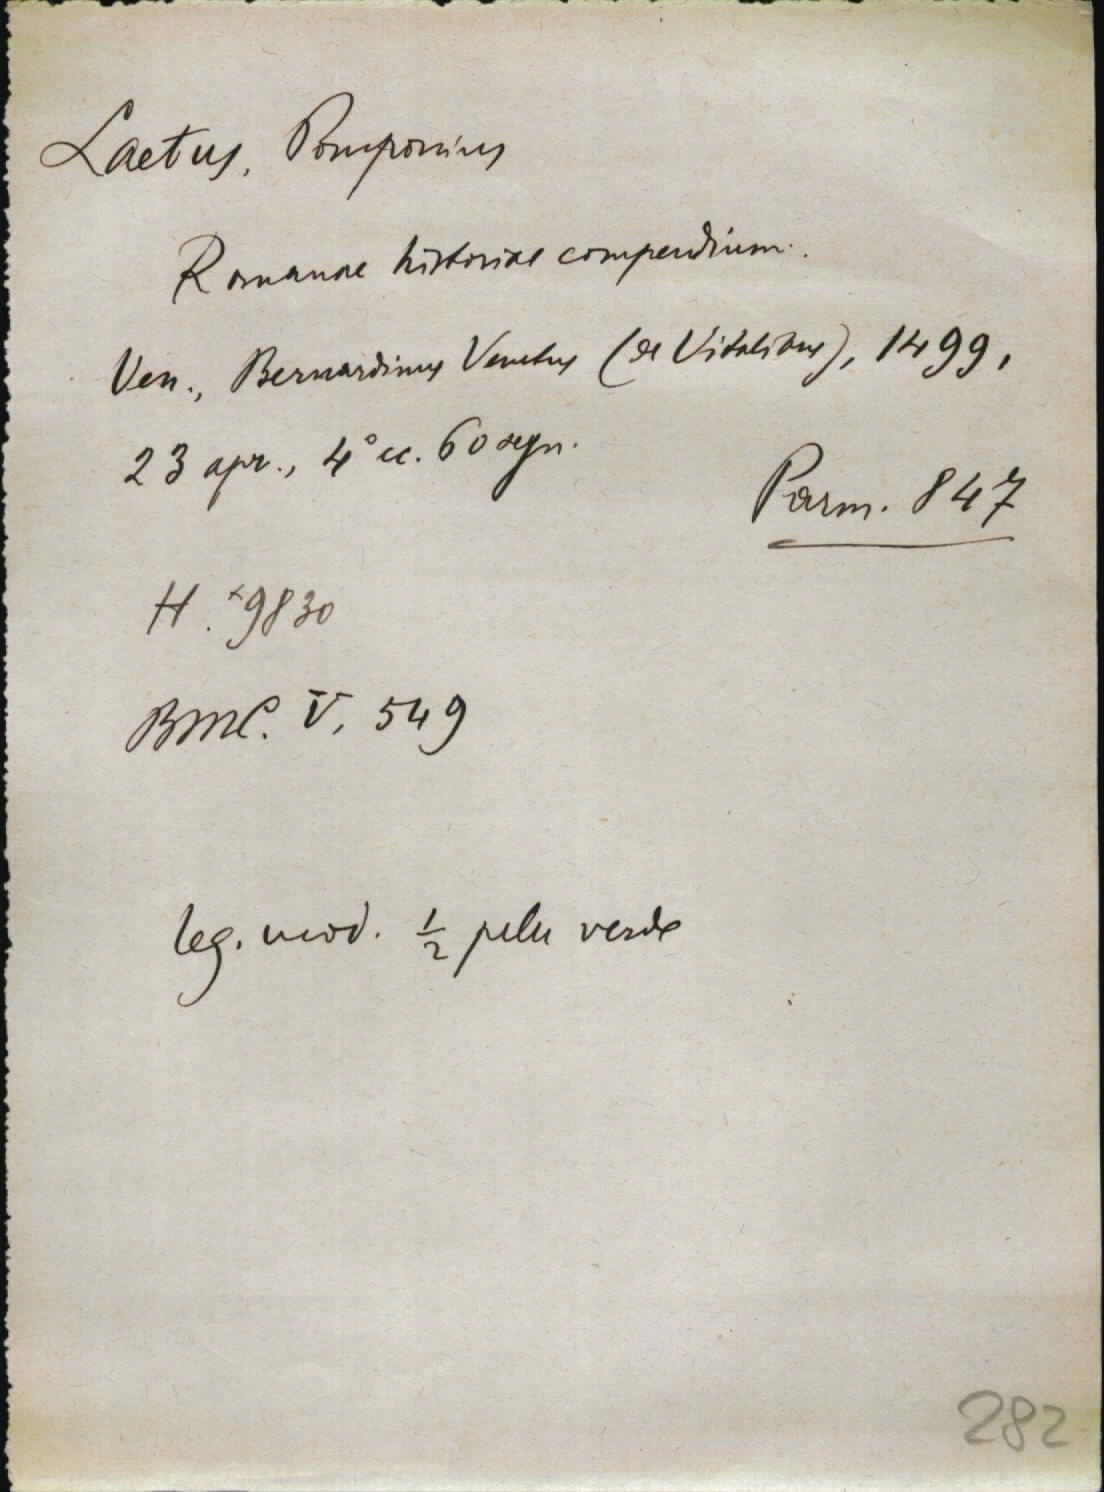 Laetus, Pomponius
Romanae historiae compendium.
Ven., Bernardinus Venetus (de Vitalibus), 1499,
23 apr., 4° cc. 60 segn.
Parm. 847
H. *9830
BMC. V, 549
leg. mod. ½ pelle verde
282